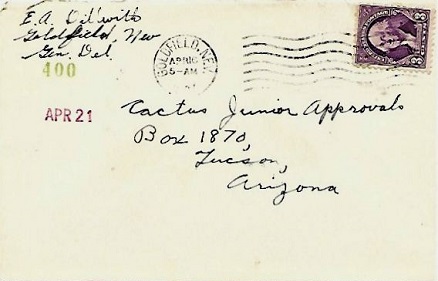 E.A. Dilwith
Goldfield, Nev
Gen. Del.
400
APR 21
GOLDFIELD. NEV.
5-AM
3
3
Cactus Junior Approvals
Box 1870,
Tucson,
Arizona